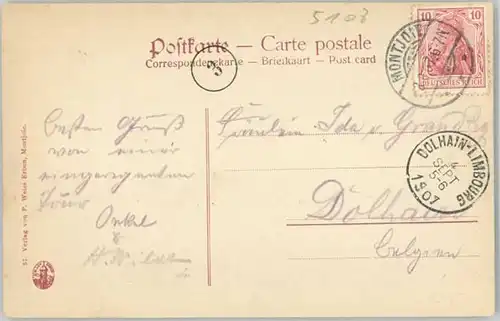 5103
Postkarte – Carte postale
Correspondenzkarte – Briefkaart – Post card
3
10 10
DEUTSCHES REICH
MONTJOIE
Fräulein Ida v. Grand Ry
DOLHAIN-LIMBOURG
SEPT
5-6
1907
Dolhain
Belgien
besten Gruß
von einer
eingeregneten
Tour
Onkel
&
57 Verlag von P. Weiss Erben, Montjoie.